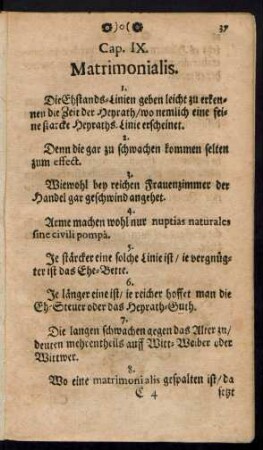 )o( 37
Cap. IX.
Matrimonialis.
1.
Die Ehstands-Linien geben leicht zu erken-
nen die Zeit der Heyrath/ wo nemlich eine fei-
ne starcke Heyraths-Linie erscheinet.
2.
Denn die gar zu schwachen kommen selten
zum effect.
3.
Wiewohl bey reichen Frauenzimmer der
Handel gar geschwind angehet.
4.
Arme machen wohl nur nuptias naturales
sine civili pompâ.
5.
Je stärcker eine solche Linie ist/ ie vergnüg-
ter ist das Ehe-Bette.
6.
Je länger eine ist/ ie reicher hoffet man die
Eh-Steuer oder das Heyrath-Guth.
7.
Die langen schwachen gegen das Alter zu/
deuten mehrentheils auff Witt-Weiber oder
Wittwer.
8.
Wo eine matrimonialis gespalten ist/ da
C 4 setzt